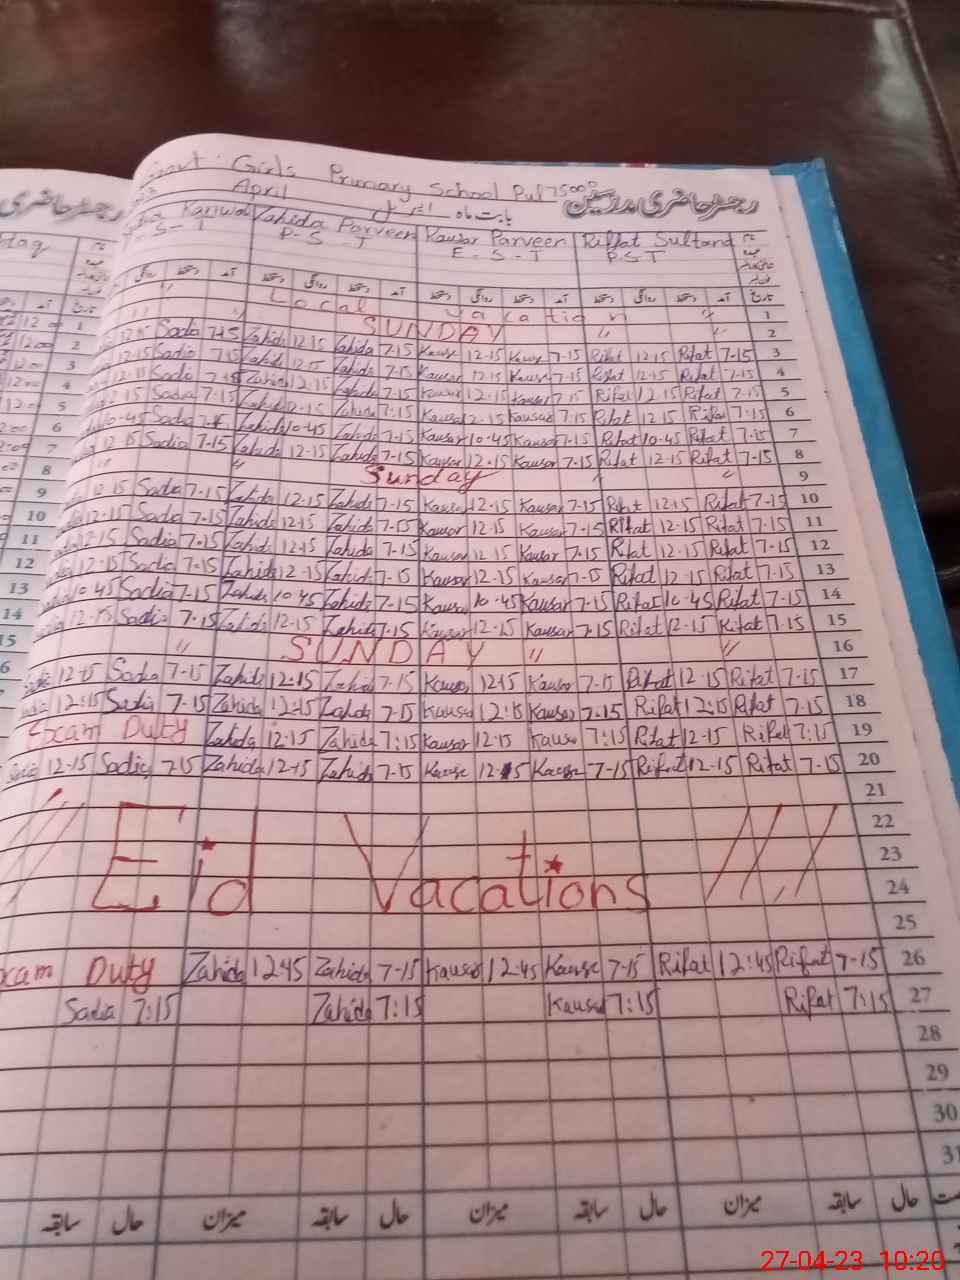 Govt. Girls Primary School Pul 7500
April بابت ماہ اپریل رجسٹر حاضری مدرسین
Zahida Parveen Kausar Parveen Riffat Sultana
S-T P-S-T E-S-T P.S.T
Local vacation 1
SUNDAY 2
Sadia 7-15 Zahida 12-15 Zahida 7-15 Kausar 12-15 Kausar 7-15 Rifat 12-15 Rifat 7-15 3
12-15 Sadia 7-15 Zahida 12-15 Zahida 7-15 Kausar 12-15 Kausar 7-15 Rifat 12-15 Rifat 7-15 4
12-15 Sadia 7-15 Zahida 12-15 Zahida 7-15 Kausar 12-15 Kausar 7-15 Rifat 12-15 Rifat 7-15 5
12-15 Sadia 7-15 Zahida 12-15 Zahida 7-15 Kausar 12-15 Kausar 7-15 Rifat 12-15 Rifat 7-15 6
10-45 Sadia Zahida 10-45 Zahida 7-15 Kausar 10-45 Kausar 7-15 Rifat 10-45 Rifat 7-15 7
12-15 Sadia 7-15 Zahida 12-15 Zahida 7-15 Kausar 12-15 Kausar 7-15 Rifat 12-15 Rifat 7-15 8
Sunday 9
12-15 Sadia 7-15 Zahida 12-15 Zahida 7-15 Kausar 12-15 Kausar 7-15 Rifat 12-15 Rifat 7-15 10
12-15 Sadia 7-15 Zahida 12-15 Zahida 7-15 Kausar 12-15 Kausar 7-15 Rifat 12-15 Rifat 7-15 11
12-15 Sadia 7-15 Zahida 12-15 Zahida 7-15 Kausar 12-15 Kausar 7-15 Rifat 12-15 Rifat 7-15 12
12-15 Sadia 7-15 Zahida 12-15 Zahida 7-15 Kausar 12-15 Kausar 7-15 Rifat 12-15 Rifat 7-15 13
10-45 Sadia 7-15 Zahida 10-45 Zahida 7-15 Kausar 10-45 Kausar 7-15 Rifat 10-45 Rifat 7-15 14
12-15 Sadia 7-15 Zahida 12-15 Zahida 7-15 Kausar 12-15 Kausar 7-15 Rifat 12-15 Rifat 7-15 15
〃 SUNDAY 〃 〃 16
12-15 Sadia 7-15 Zahida 12-15 Zahida 7-15 Kausar 12-15 Kausar 7-15 Rifat 12-15 Rifat 7-15 17
12:15 Sadia 7-15 Zahida 12-15 Zahida 7-15 Kausar 12:15 Kausar 7-15 Rifat 12:15 Rifat 7-15 18
Exam Duty Zahida 12-15 Zahida 7:15 Kausar 12-15 Kausar 7:15 Rifat 12-15 Rifat 7:15 19
Sadia 12-15 Sadia 7-15 Zahida 12-15 Zahida 7-15 Kausar 12-15 Kausar 7-15 Rifat 12-15 Rifat 7-15 20
21
22
Eid Vacations 23
24
25
Exam Duty Zahida 12:45 Zahida 7-15 Kausar 12-45 Kausar 7-15 Rifat 12:45 Rifat 7-15 26
Sadia 7:15 Zahida 7:15 Kausar 7:15 Rifat 7:15 27
28
29
30
31
حال سابقہ میزان حال سابقہ میزان حال سابقہ میزان حال سابقہ
27-04-23 10:20